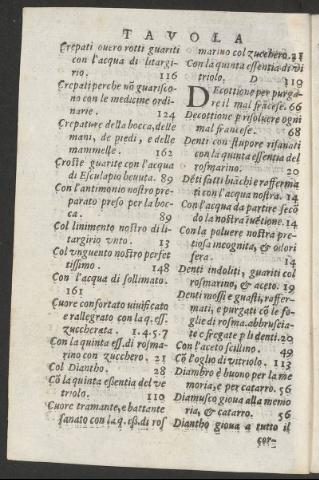 TAVOLA
Crepati ouero rotti guariti
con l'acqua di litargi-
rio. 116
Crepati perche nõ guarisco-
no con le medicine ordi-
narie. 124
Crepature della bocca, delle
mani, de piedi, e delle
mammelle. 162
Croste guarite con l'acqua
di Esculapio beuuta. 89
Con l'antimonio nostro pre-
parato preso per la boc-
ca. 89
Col linimento nostro di li-
targirio vnto. 13
Col vnguento nostro perfet
tissimo. 148
Con l'acqua di sollimato.
161
Cuore confortato viuificato
e rallegrato con la q. ess.
zuccherata. 1.4.5.7
Con la quinta ess. di rosma-
rino con zucchero. 21
Col Diantho. 28
Cõ la quinta essentia del ve
triolo. 110
Cuore tramante, e battante
sanato con la q. ess. di ros
marino col zucchero. 21
Con la quinta essentia di vi
triolo. D 119
DEcottione per purga-
re il mal frãcese. 66
Decottione p risoluere ogni
mal francese. 68
Denti con stupore risanati
con la quinta essentia del
rosmarino. 20
Dẽti fatti biãchi e rafferma
ti con l'acqua nostra. 14
Con l'acqua da partire secõ
do la nostra inuẽtione. 14
Con la poluere nostra pre-
tiosa incognita, & odori
fera. 14
Denti indoliti, guariti col
rosmarino, & aceto. 19
Denti mossi e guasti, raffer-
mati, e purgati cõ le fo-
glie di rosma. abbruscia-
te e fregate p li denti. 20
Con l'aceto scilino. 49
Cõ l'oglio di vitriolo. 113
Diambro è buono per la me
moria, e per catarro. 56
Diamusco gioua alla memo
ria, & catarro. 56
Diantho gioua a tutto il
cor-